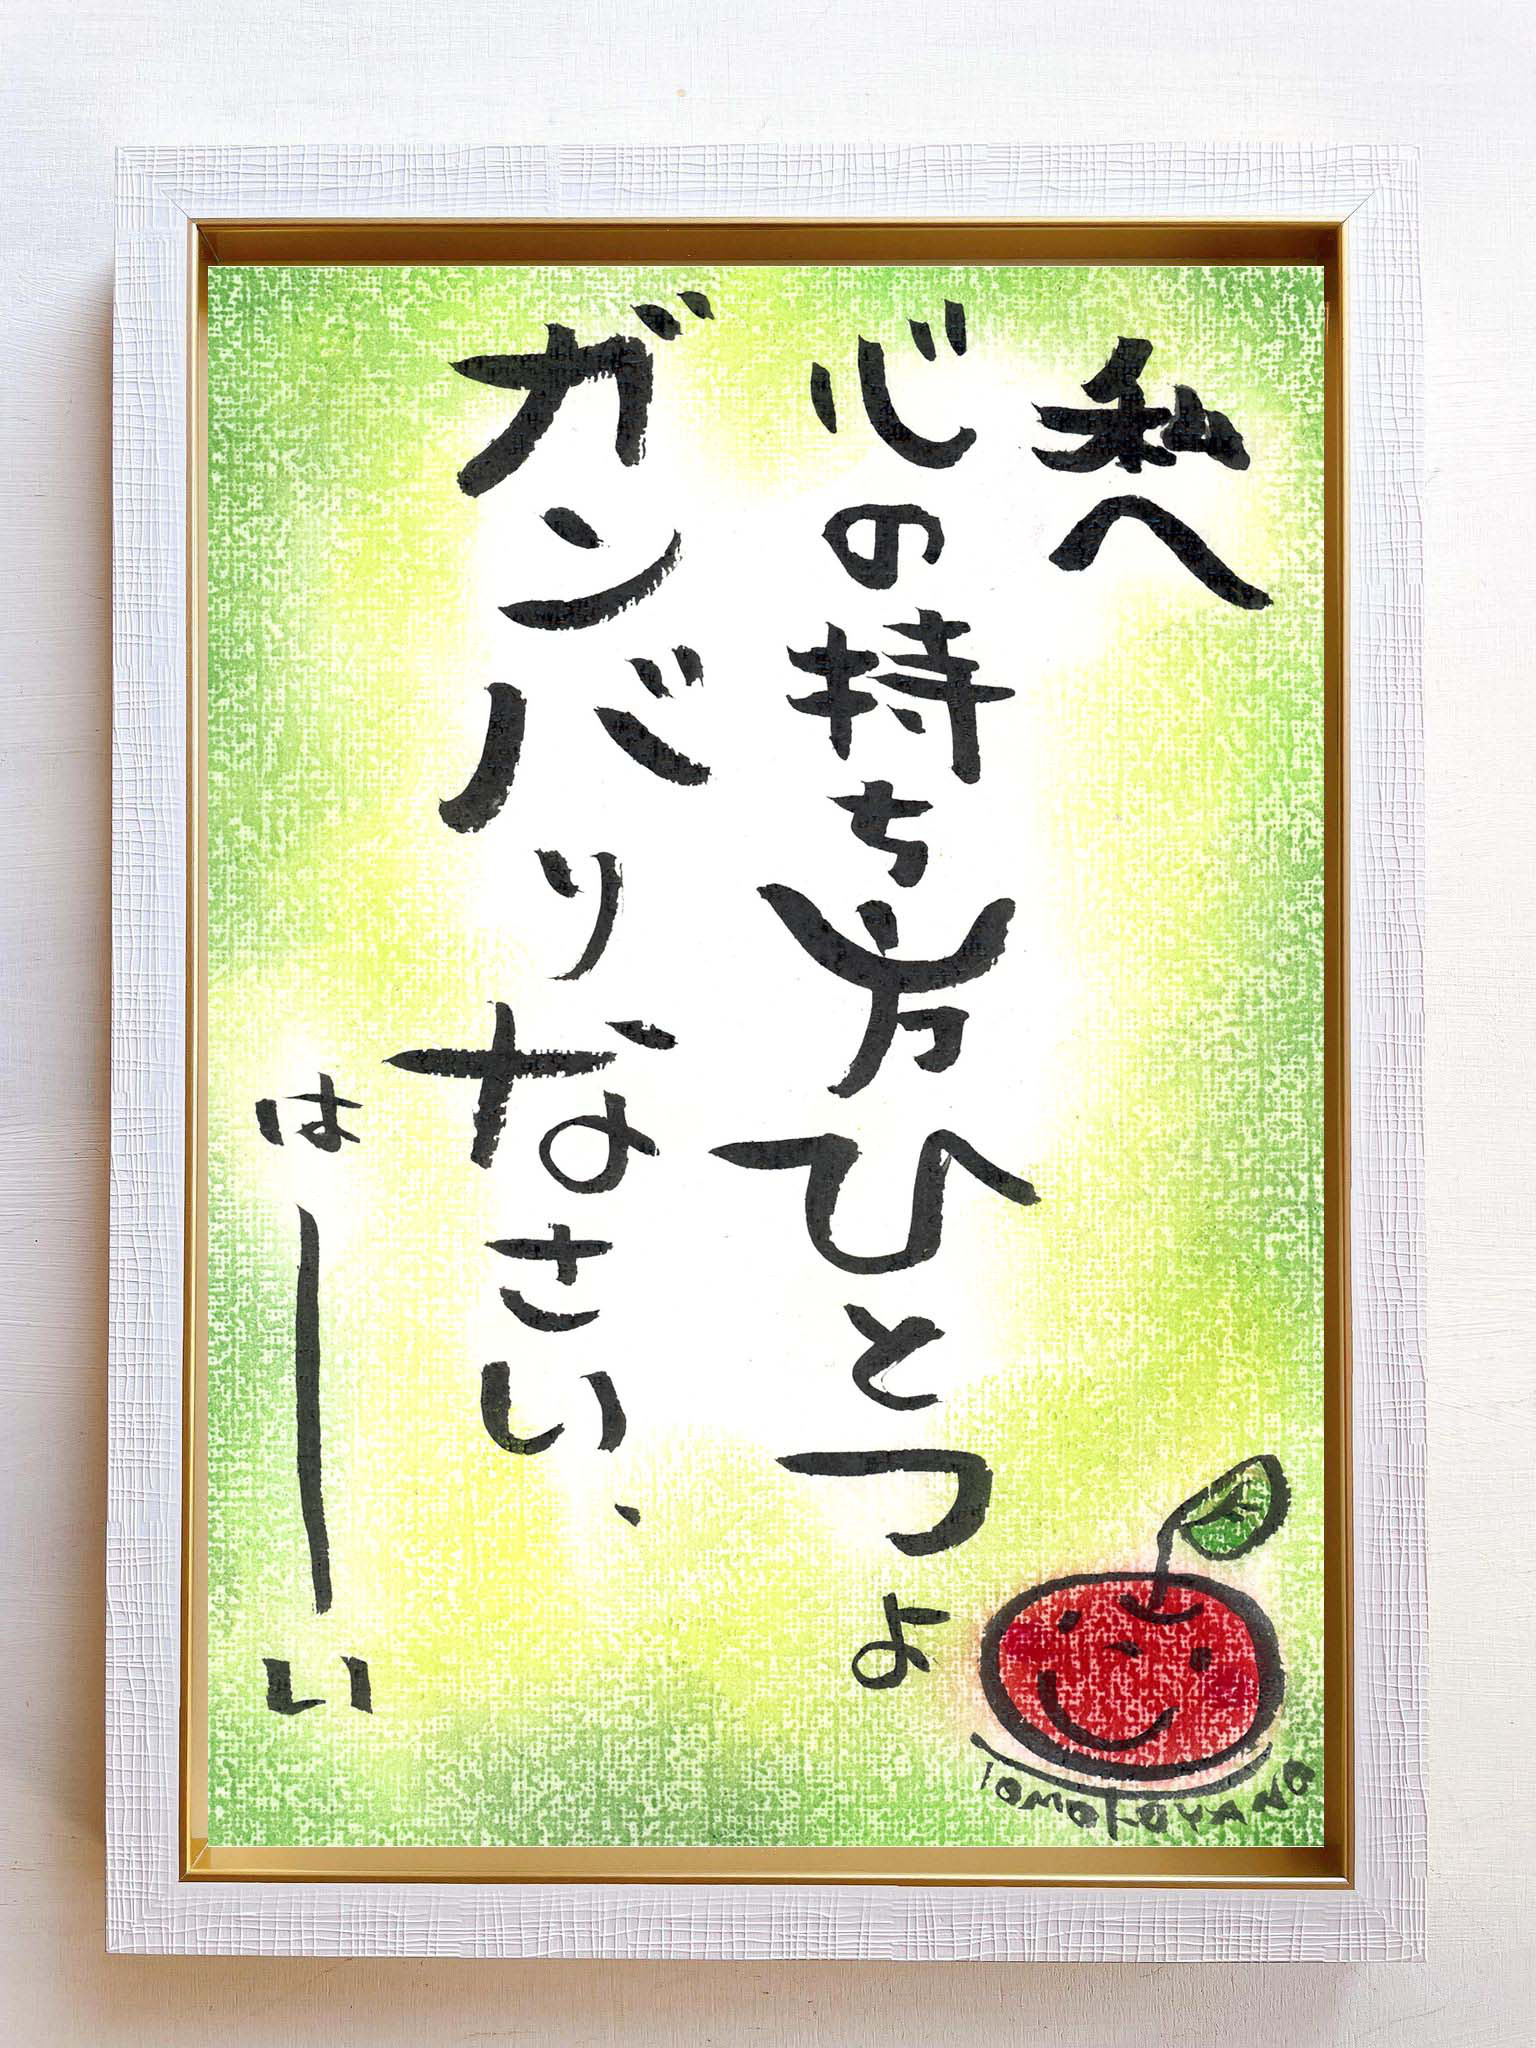 私へ
心の持ち方ひとつよ
ガンバりなさい、
はーい
TOMOKOYANO